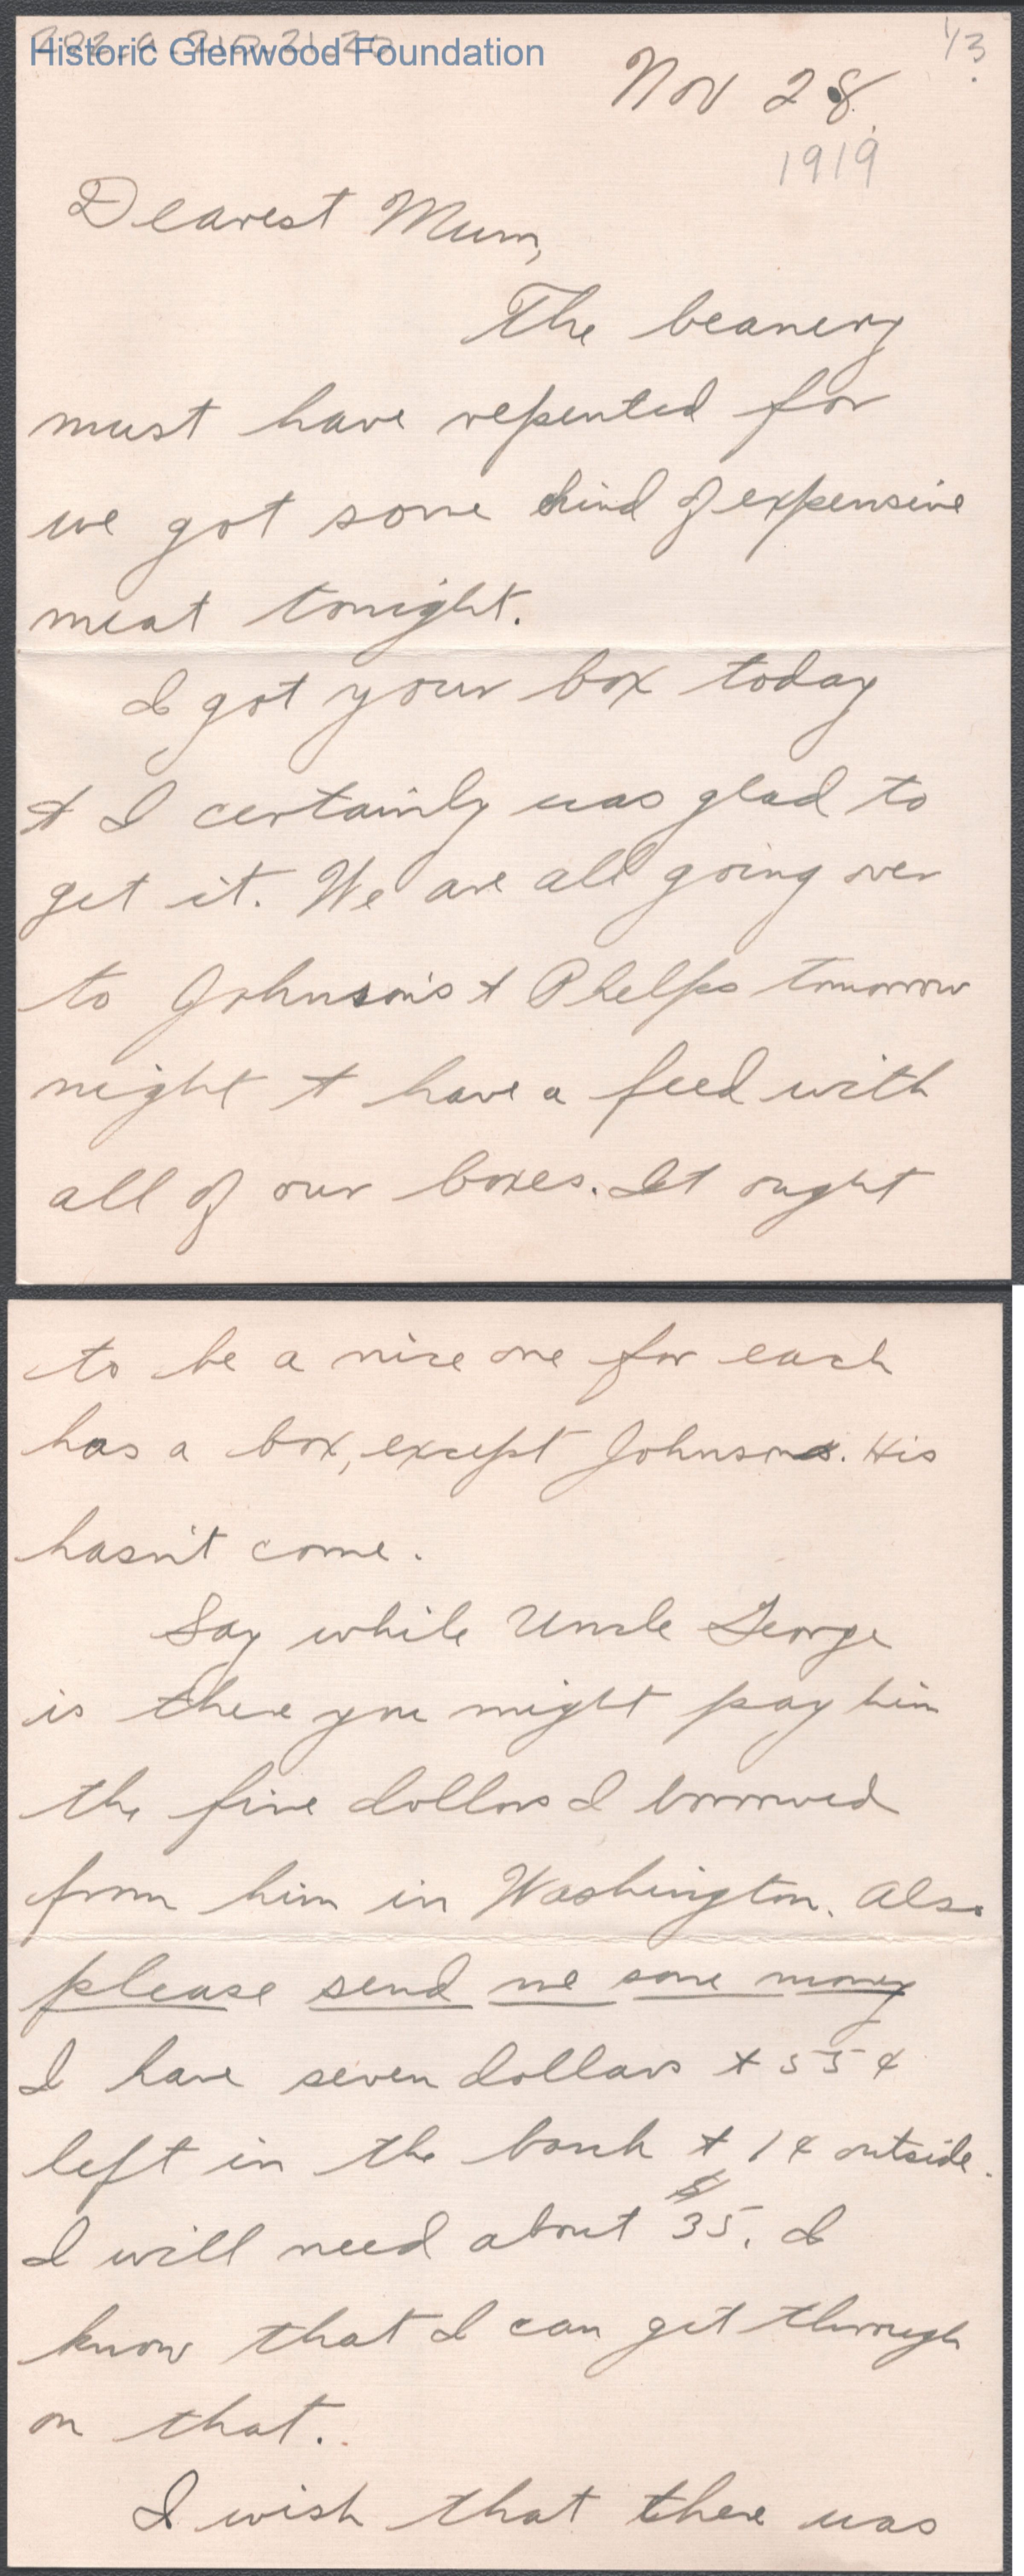 Historic Glenwood Foundation
1/3
Nov 28.
1919
Dearest Mum,
The beanery
must have repented for
we got some kind of expensive
meat tonight.
I got your box today
+ I certainly was glad to
get it. We are all going over
to Johnson's + Phelps tomorrow
night + have a feed with
all of our boxes. It ought
to be a nice one for each
has a box, except Johnson. His
hasn't come.
Say while Uncle George
is there you might pay him
the five dollars I borrowed
from him in Washington. Also
please send me some money
I have seven dollars + 55¢
left in the bank + 1¢ outside.
I will need about $35. I
know that I can get through
on that.
I wish that there was